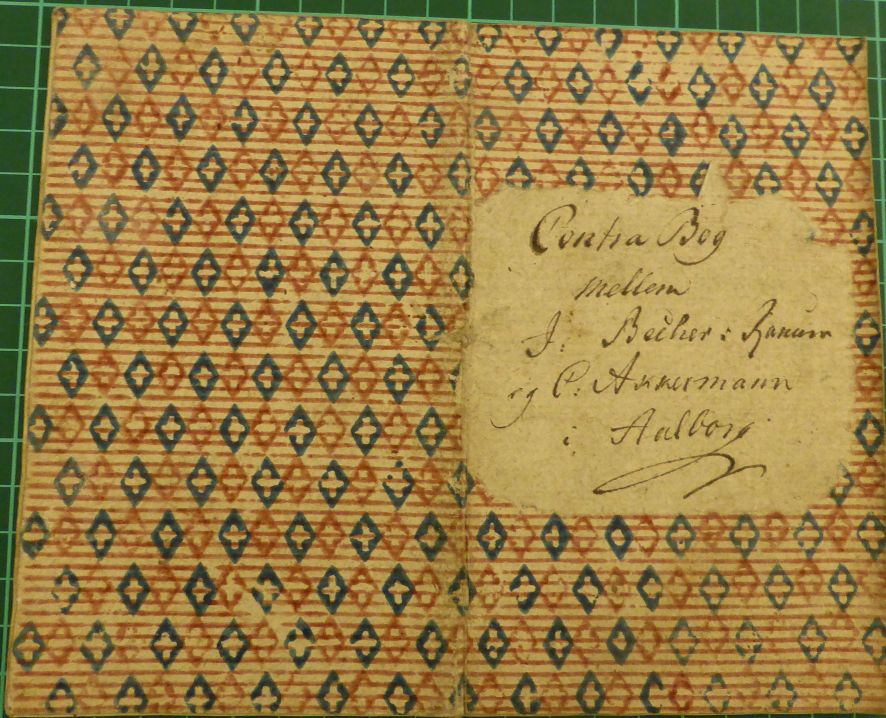 Contra Bog
mellem
J: Becher i Ranum
og C: Akkermann
i Aalborg